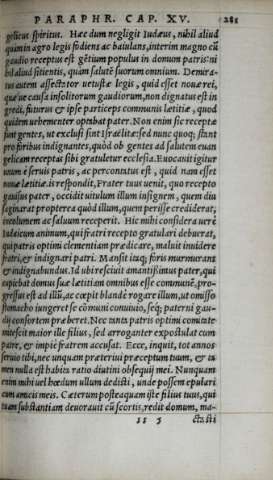 PARAPHR. CAP. XV. 281
gelicus spiritus. Hæc dum negligit Iudæus, nihil aliud
quàm in agro legis fodiens ac baiulans, interim magno cũ
gaudio receptus est gẽtium populus in domum patris: ni
hil aliud sitientis, quàm salutẽ suorum omnium. Demira-
tus autem assectator uetustæ legis, quid esset nouæ rei,
quæ ue causa insolitorum gaudiorum, non dignatus est in
gredi, futurus & ipse particeps communis lætitiæ, quod
quidem uehementer optabat pater. Non enim sic receptæ
sunt gentes, ut exclusi sint Israëlitæ: sed nunc quoq; stant
pro foribus indignantes, quòd ob gentes ad salutem euan
gelicam receptas sibi gratuletur ecclesia. Euocauit igitur
unum è seruis patris, ac percontatus est, quid nam esset
nouæ lætitiæ. is respondit, Frater tuus uenit, quo recepto
gauisus pater, occidit uitulum illum insignem, quem diu
saginarat propterea quòd illum, quem perisse crediderat,
incolumem ac saluum receperit. Hic mihi considera ueré
Iudaicum animum, qui fratri recepto gratulari debuerat,
qui patris optimi clementiam prædicare, maluit inuidere
fratri, & indignari patri. Mansit itaq; foris murmurans
& indignabundus. Id ubi resciuit amantissimus pater, qui
cupiebat domui suæ lætitiam omnibus esse communẽ, pro-
gressus est ad illũ, ac cœpit blandè rogare illum, ut omisso
stomacho iungeret se cõmuni conuiuio, seq; paterni gau-
dij consortem præberet. Nec tanta patris optimi comitate
mitescit maior ille filius, sed arroganter expostulat cum
patre, & impiè fratrem accusat. Ecce, inquit, tot annos
seruio tibi, nec unquam præteriui præceptum tuum, & ta
men nulla est habita ratio diutini obsequij mei. Nunquam
enim mihi uel hœdum ullum dedisti, unde possem epulari
cum amicis meis. Cæterum posteaquam iste filius tuus, qui
tuam substantiam deuorauit cũ scortis, redit domum, ma-
ll 5 ctasti